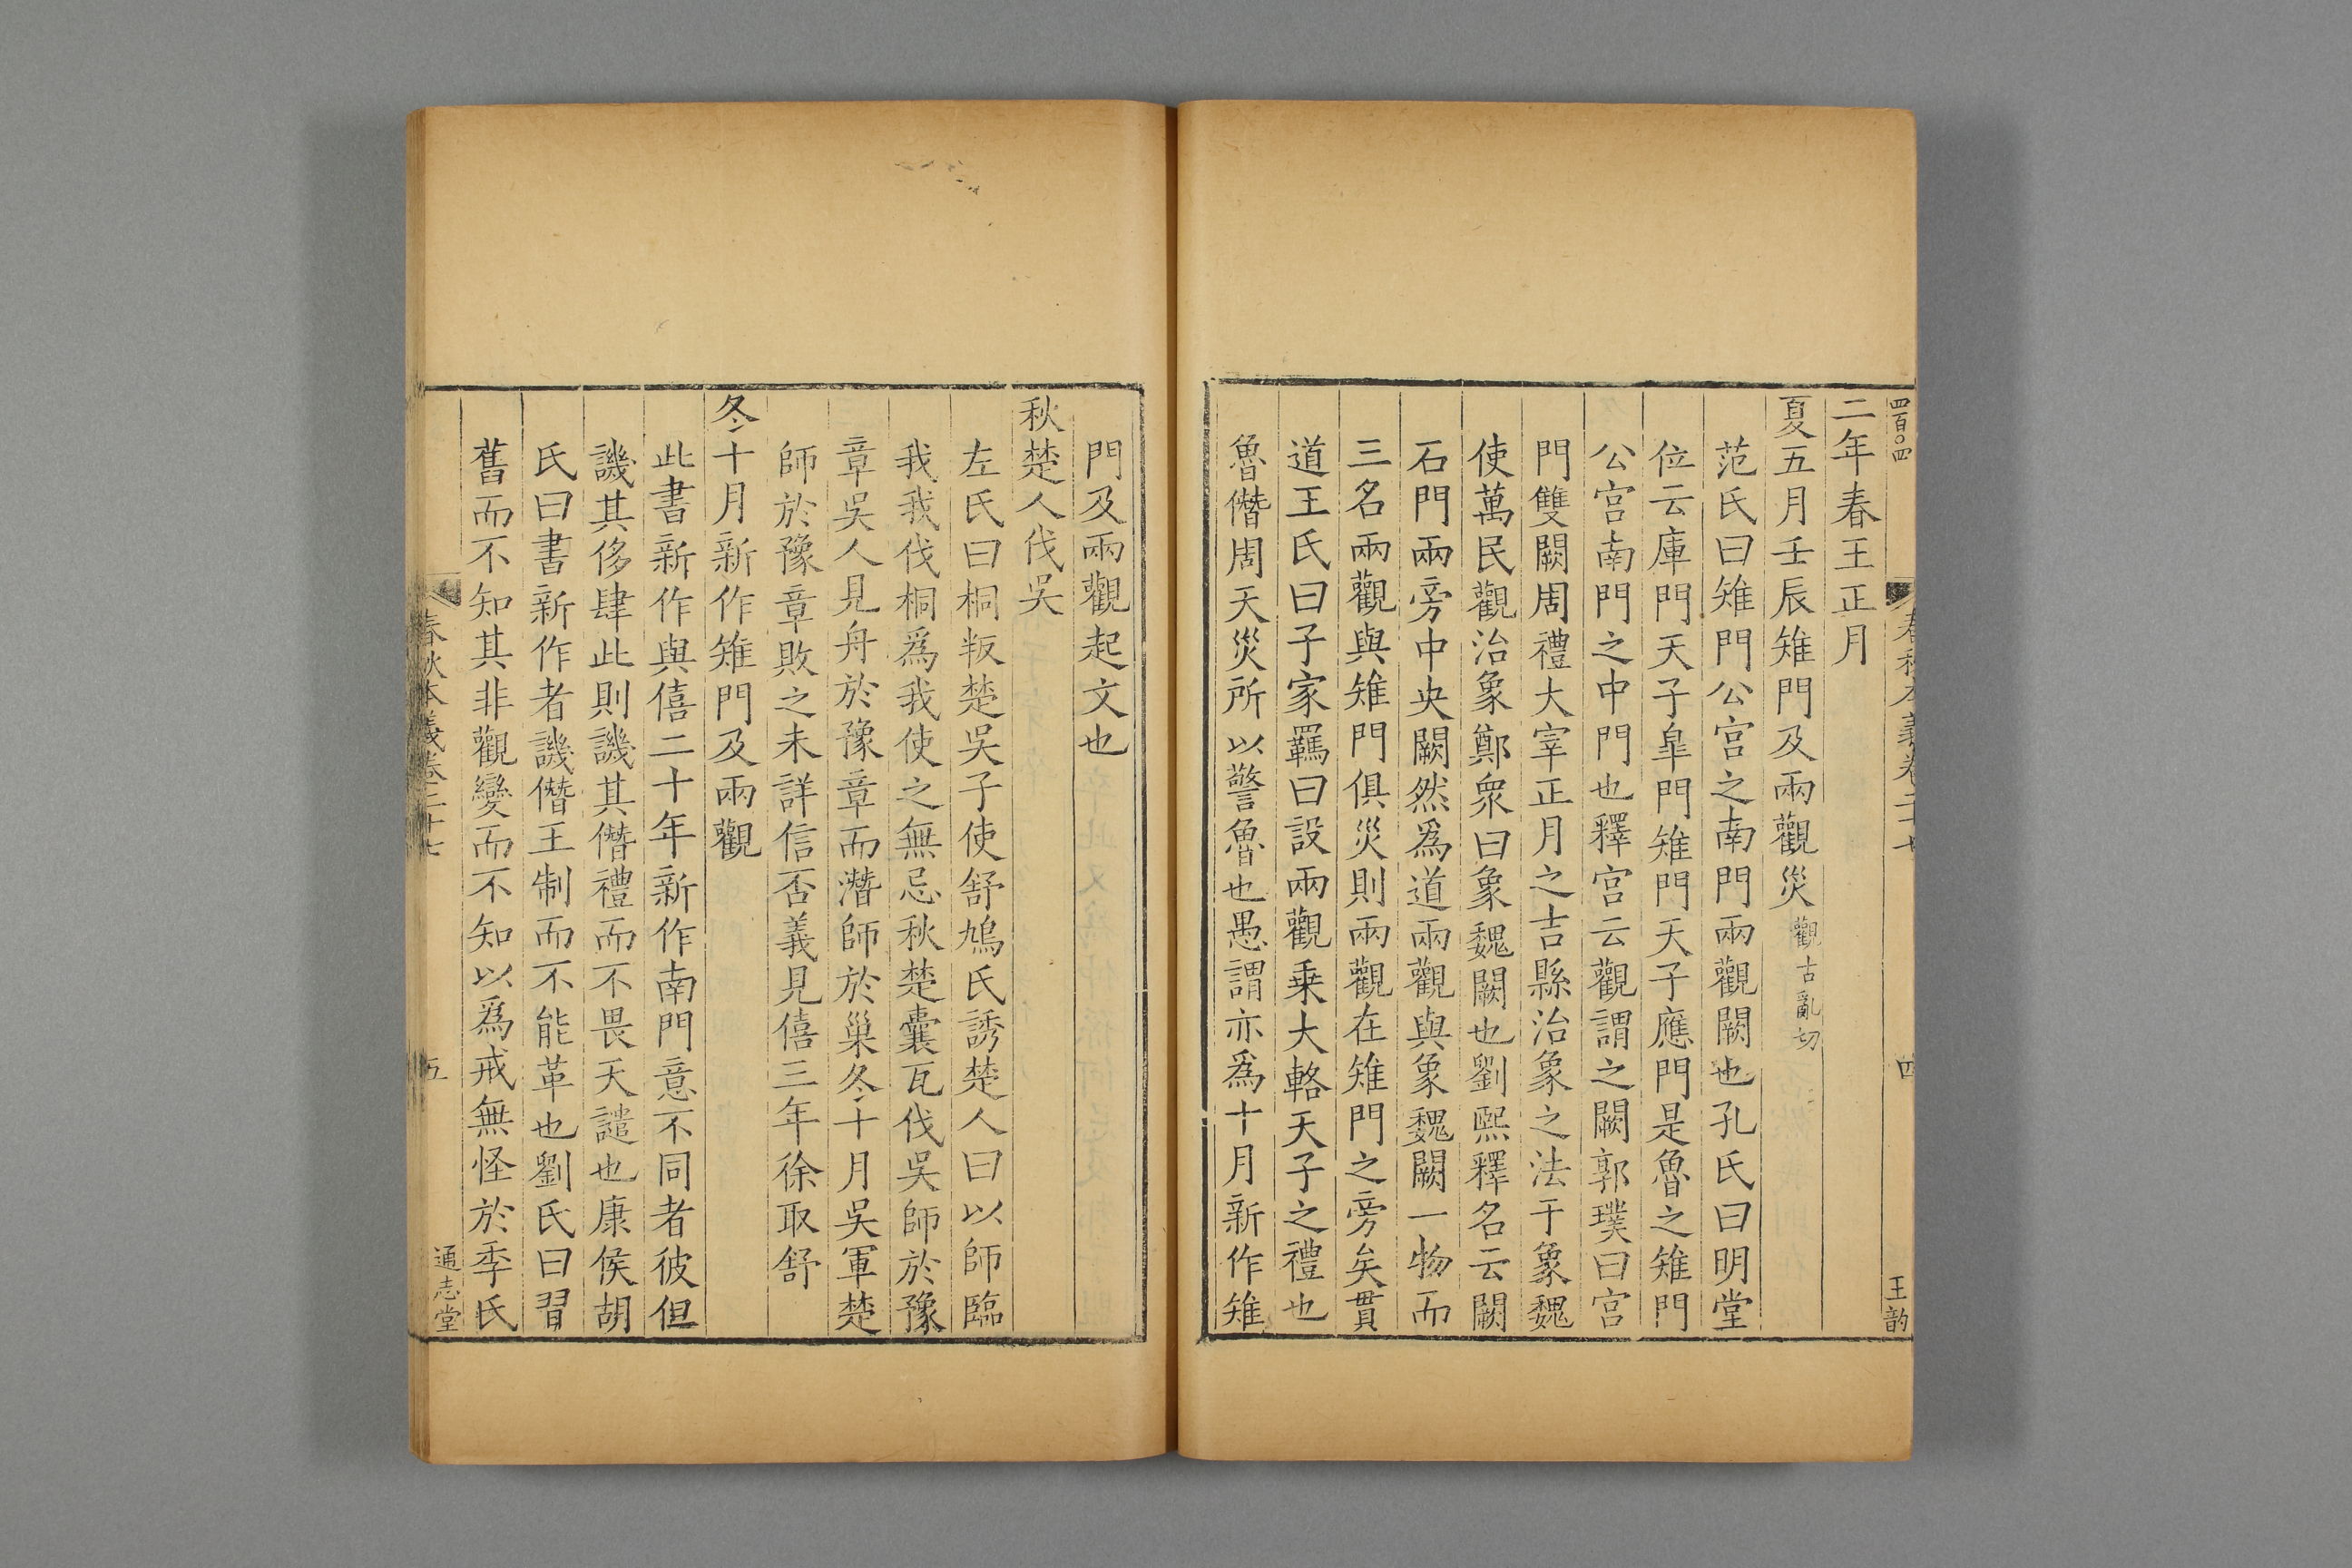 四百〇四
春秋本義卷二十七
四
王韵
二年春王正月
夏五月壬辰雉門及兩觀災觀古亂切
范氏曰雉門公宮之南門兩觀闕也孔氏曰明堂
位云庫門天子皐門雉門天子應門是魯之雉門
公宮南門之中門也釋宮云觀謂之闕郭璞曰宮
門雙闕周禮大宰正月之吉縣治象之法于象魏
使萬民觀治象鄭衆曰象魏闕也劉熙釋名云闕
石門兩旁中央闕然爲道兩觀與象魏闕一物而
三名兩觀與雉門俱災則兩觀在雉門之旁矣貫
道王氏曰子家羈曰設兩觀乗大輅天子之禮也
魯僭周天災所以警魯也愚謂亦爲十月新作雉
門及兩觀起文也
秋楚人伐吳
左氏曰桐叛楚吳子使舒鳩氏誘楚人曰以師臨
我我伐桐爲我使之無忌秋楚囊瓦伐吳師於豫
章吳人見舟於豫章而潛師於巢冬十月吳軍楚
師於豫章敗之未詳信否義見僖三年徐取舒
冬十月新作雉門及兩觀
此書新作與僖二十年新作南門意不同者彼但
譏其侈肆此則譏其僭禮而不畏天譴也康侯胡
氏曰書新作者譏僭王制而不能革也劉氏曰習
舊而不知其非觀變而不知以爲戒無怪於季氏
春秋本義卷二十七
五
通志堂